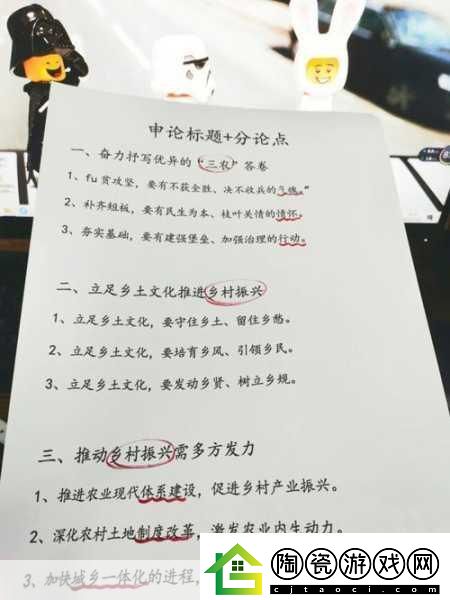 申论标题+分论点
一、奋力抒写优异的“三农”答卷
1、fu贫攻坚，要有不获全胜、决不收兵的气魄。”
2、补齐短板，要有民生为本、枝叶关情的情怀。
3、夯实基础，要有建强堡垒、加强治理的行动。
二、立足乡土文化推进乡村振兴
1、立足乡土文化，要守住乡土、留住乡愁。
2、立足乡土文化，要培育乡风、引领乡民。
3、立足乡土文化，要发动乡贤、树立乡规。
三、推动乡村振兴需多方发力
1、推进农业现代体系建设，促进乡村产业振兴。
2、深化农村土地制度改革，激发农业内生动力。
3、加快城乡一体化的进程，
陶瓷游戏网
cjtaoci.com